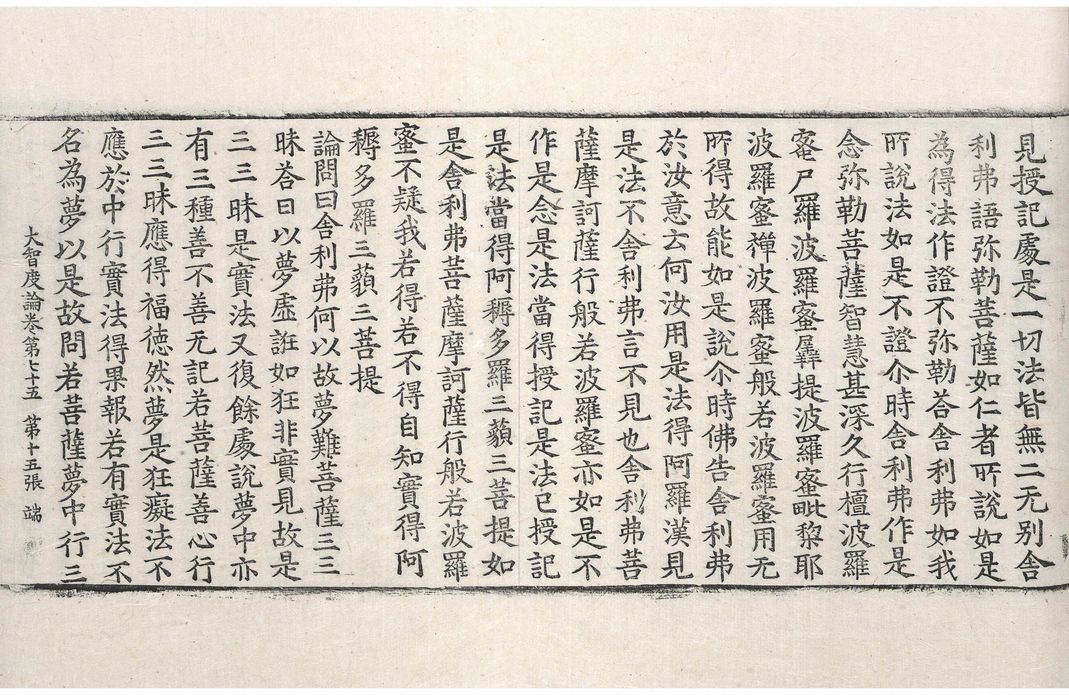 見授記處是一切法皆無二无别舍
利弗語弥勒菩薩如仁者所說如是
為得法作證不弥勒荅舍利弗如我
所說法如是不證尒時舍利弗作是
念弥勒菩薩智慧甚深久行檀波羅
蜜尸羅波羅蜜羼提波羅蜜毗黎耶
波羅蜜禪波羅蜜般若波羅蜜用无
所得故能如是說尒時佛告舍利弗
於汝意云何汝用是法得阿羅漢見
是法不舍利弗言不見也舍利弗菩
薩摩訶薩行般若波羅蜜亦如是不
作是念是法當得授記是法已授記
是法當得阿耨多羅三藐三菩提如
是舍利弗菩薩摩訶薩行般若波羅
蜜不疑我若得若不得自知實得阿
耨多羅三藐三菩提
論問曰舍利弗何以故夢難菩薩三三
昧荅曰以夢虛誑如狂非實見故是
三三昧是實法又復餘處說夢中亦
有三種善不善无記若菩薩善心行
三三昧應得福德然夢是狂癡法不
應於中行實法得果報若有實法不
名為夢以是故問若菩薩夢中行三
大智度論卷第七十五 第十五張 端